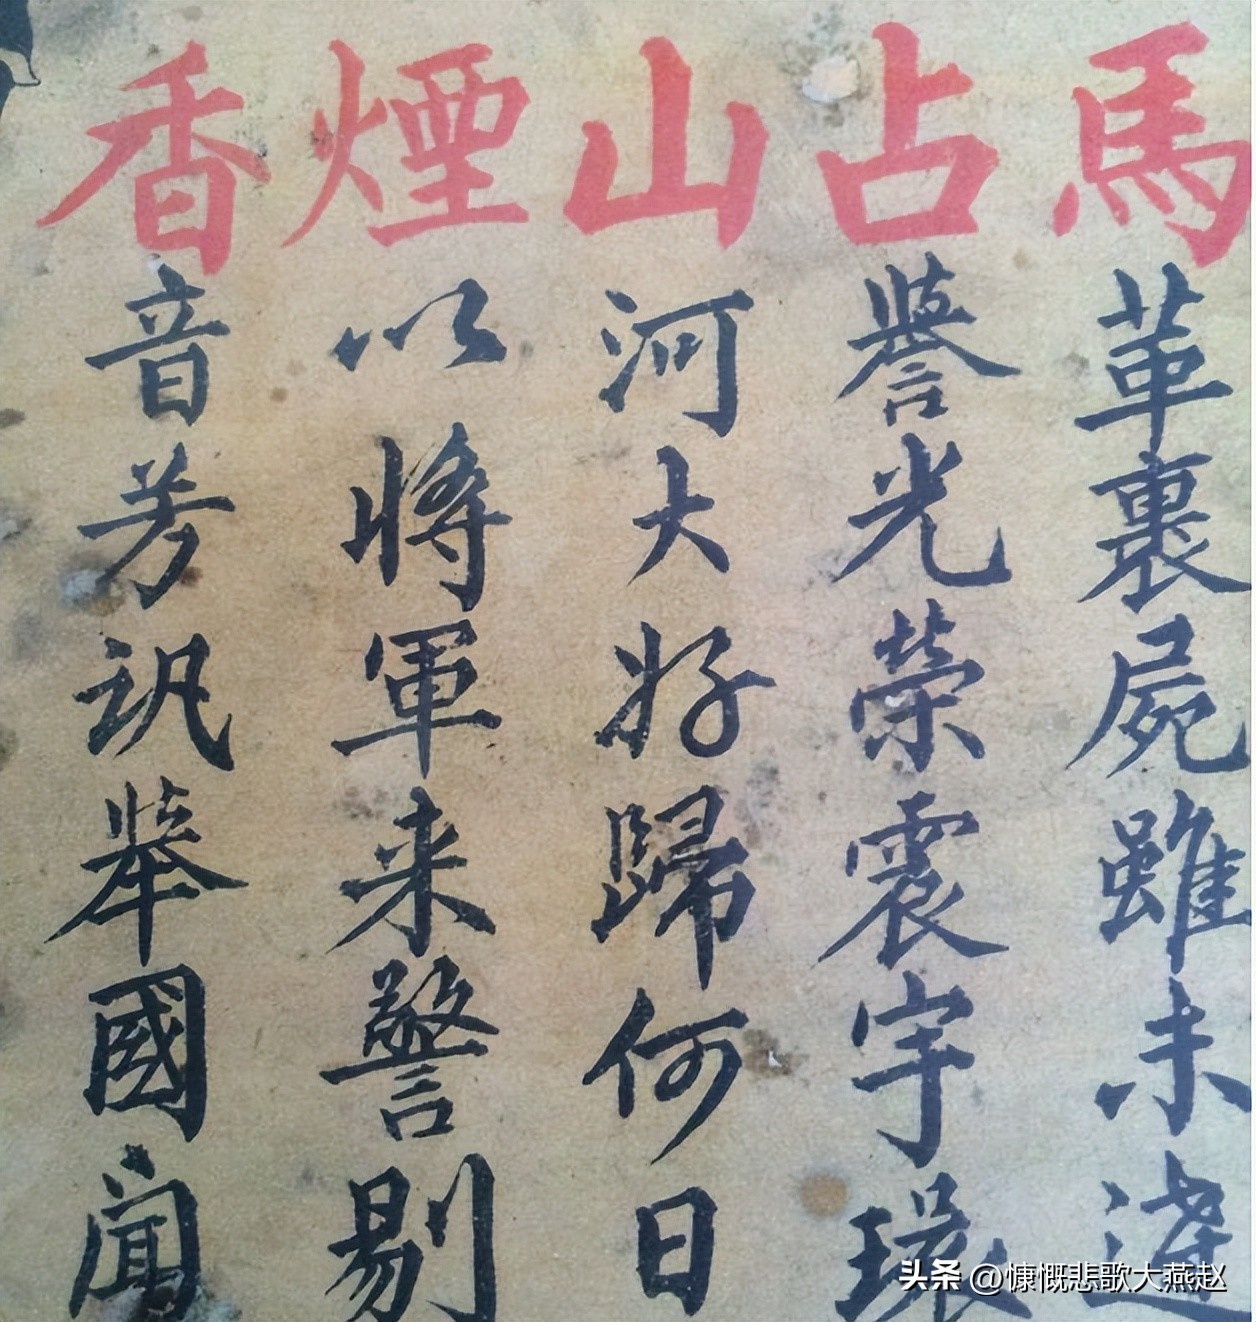 馬革裹屍雖未達
占譽光榮震宇環
山河大好歸何日
煙以將軍来警剔
香音芳訊舉國聞
头条 @慷慨悲歌大燕赵